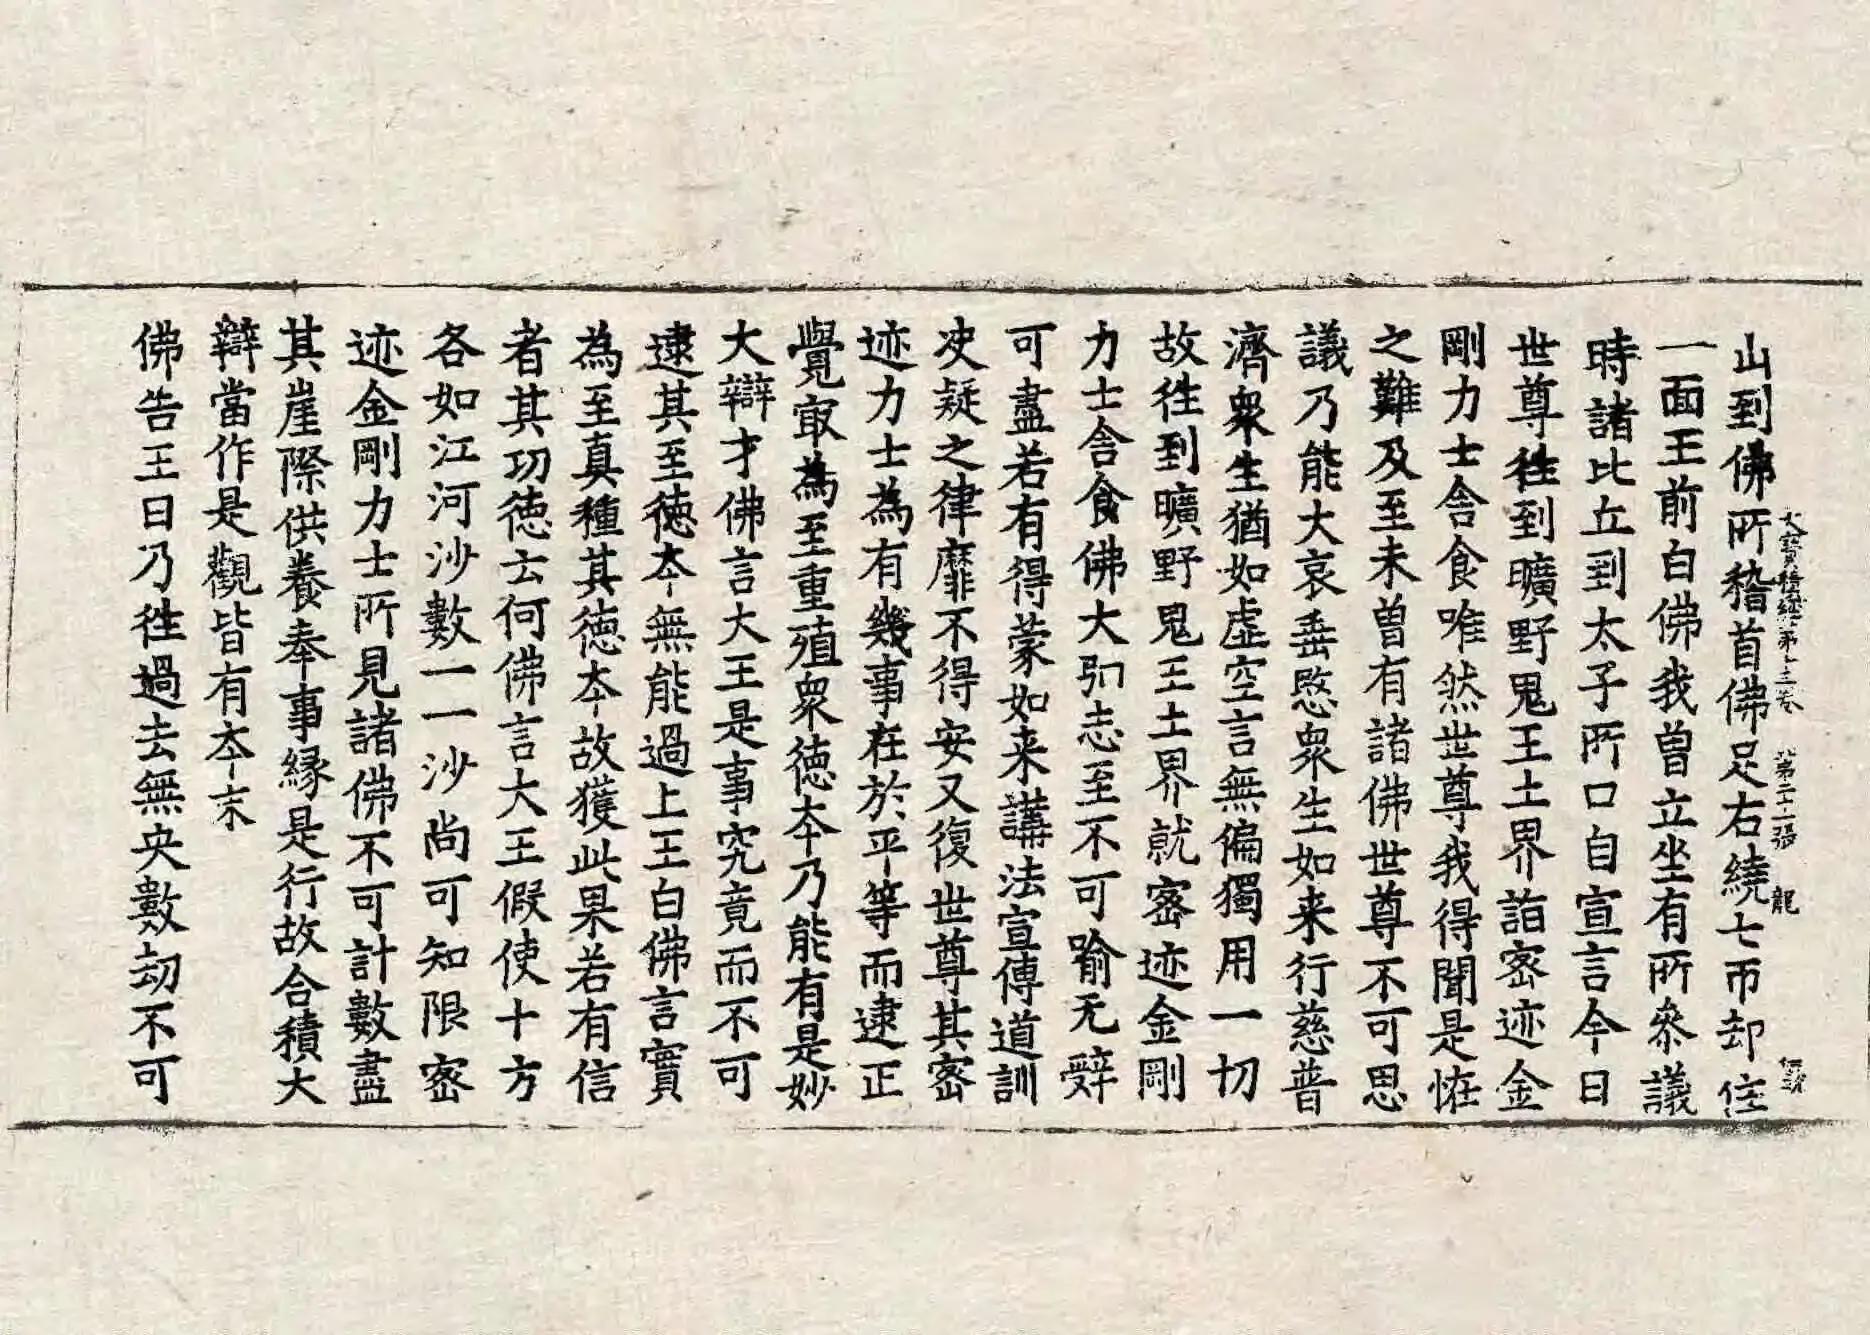 大寶積經第十三卷 第二十一張 龍
山到佛所稽首佛足右繞七帀却住
一面王前白佛我曾立坐有所叅議
時諸比丘到太子所口自宣言今日
世尊徃到曠野鬼王土界詣密迹金
剛力士舍食唯然世尊我得聞是恠
之難及至未曽有諸佛世尊不可思
議乃能大哀垂愍衆生如来行慈普
濟衆生猶如虛空言無偏獨用一切
故徃到曠野鬼王土界就密迹金剛
力士舍食佛大弘志至不可喻无辤
可盡若有得蒙如来講法宣傳道訓
决疑之律靡不得安又復世尊其密
迹力士為有幾事在於平等而逮正
覺㝡為至重殖衆徳夲乃能有是妙
大辯才佛言大王是事究竟而不可
逮其至徳夲無能過上王白佛言實
為至真種其徳夲故獲此果若有信
者其功徳云何佛言大王假使十方
各如江河沙數一一沙尚可知限密
迹金剛力士所見諸佛不可計數盡
其崖際供養奉事縁是行故合積大
辯當作是觀皆有夲末
佛告王曰乃徃過去無央數劫不可